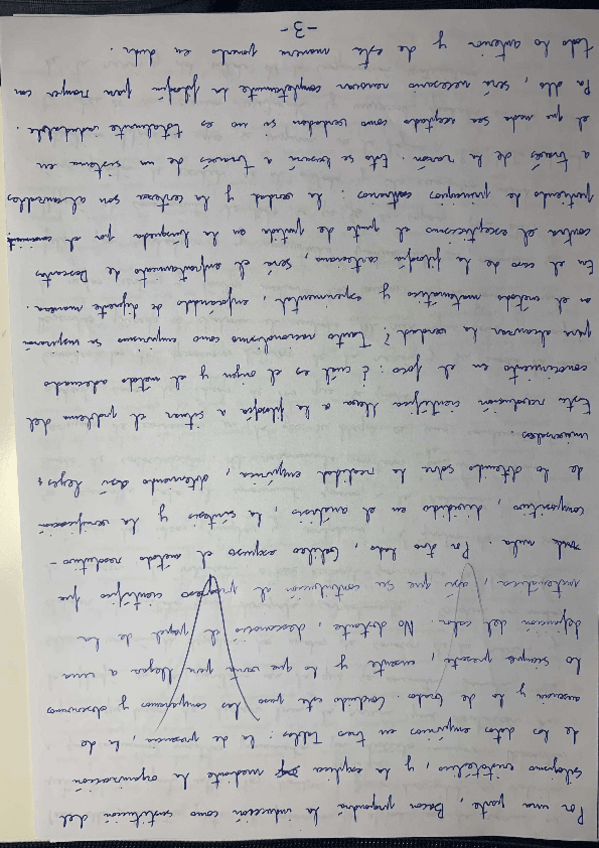 Por una parte, Bacon propondrá la inducción como sustitución del
silogismo aristotélico, y la explica mediante la organización
de los datos empíricos en tres Tablas: la de presencia, la de
ausencia y la de grados. Concluido este paso las comparamos y descubrimos
lo siempre presente, ausente y lo que varía para llegar a una
definición del calor. No obstante, desconoció el papel de la
matemática, así que su contribución al progreso científico fue
nula. Por otro lado, Galileo expuso el método resolutivo-
compositivo, dividido en el análisis, la síntesis y la verificación
de lo obtenido sobre la realidad empírica, obteniendo así leyes
universales.
Esta revolución científica lleva a la filosofía a situar el problema del
conocimiento en el foco: ¿cuál es el origen y el método adecuado
para alcanzar la verdad? Tanto racionalismo como empirismo se inspirarán
en método matemático y experimental, enfocándolo de diferente manera.
En el caso de la filosofía cartesiana, será el enfrentamiento de Descartes
contra el escepticismo el punto de partida en la búsqueda por el
partiendo de principios contrarios: la verdad y la certeza son alcanzables
a través de la razón. Esta se basará a través de un sistema en
el que nada sea aceptado como verdadero si no es totalmente indudable.
Por ello, será necesario revisar completamente la filosofía para romper con
todo lo anterior y de esta manera ponerlo en duda.
-3-